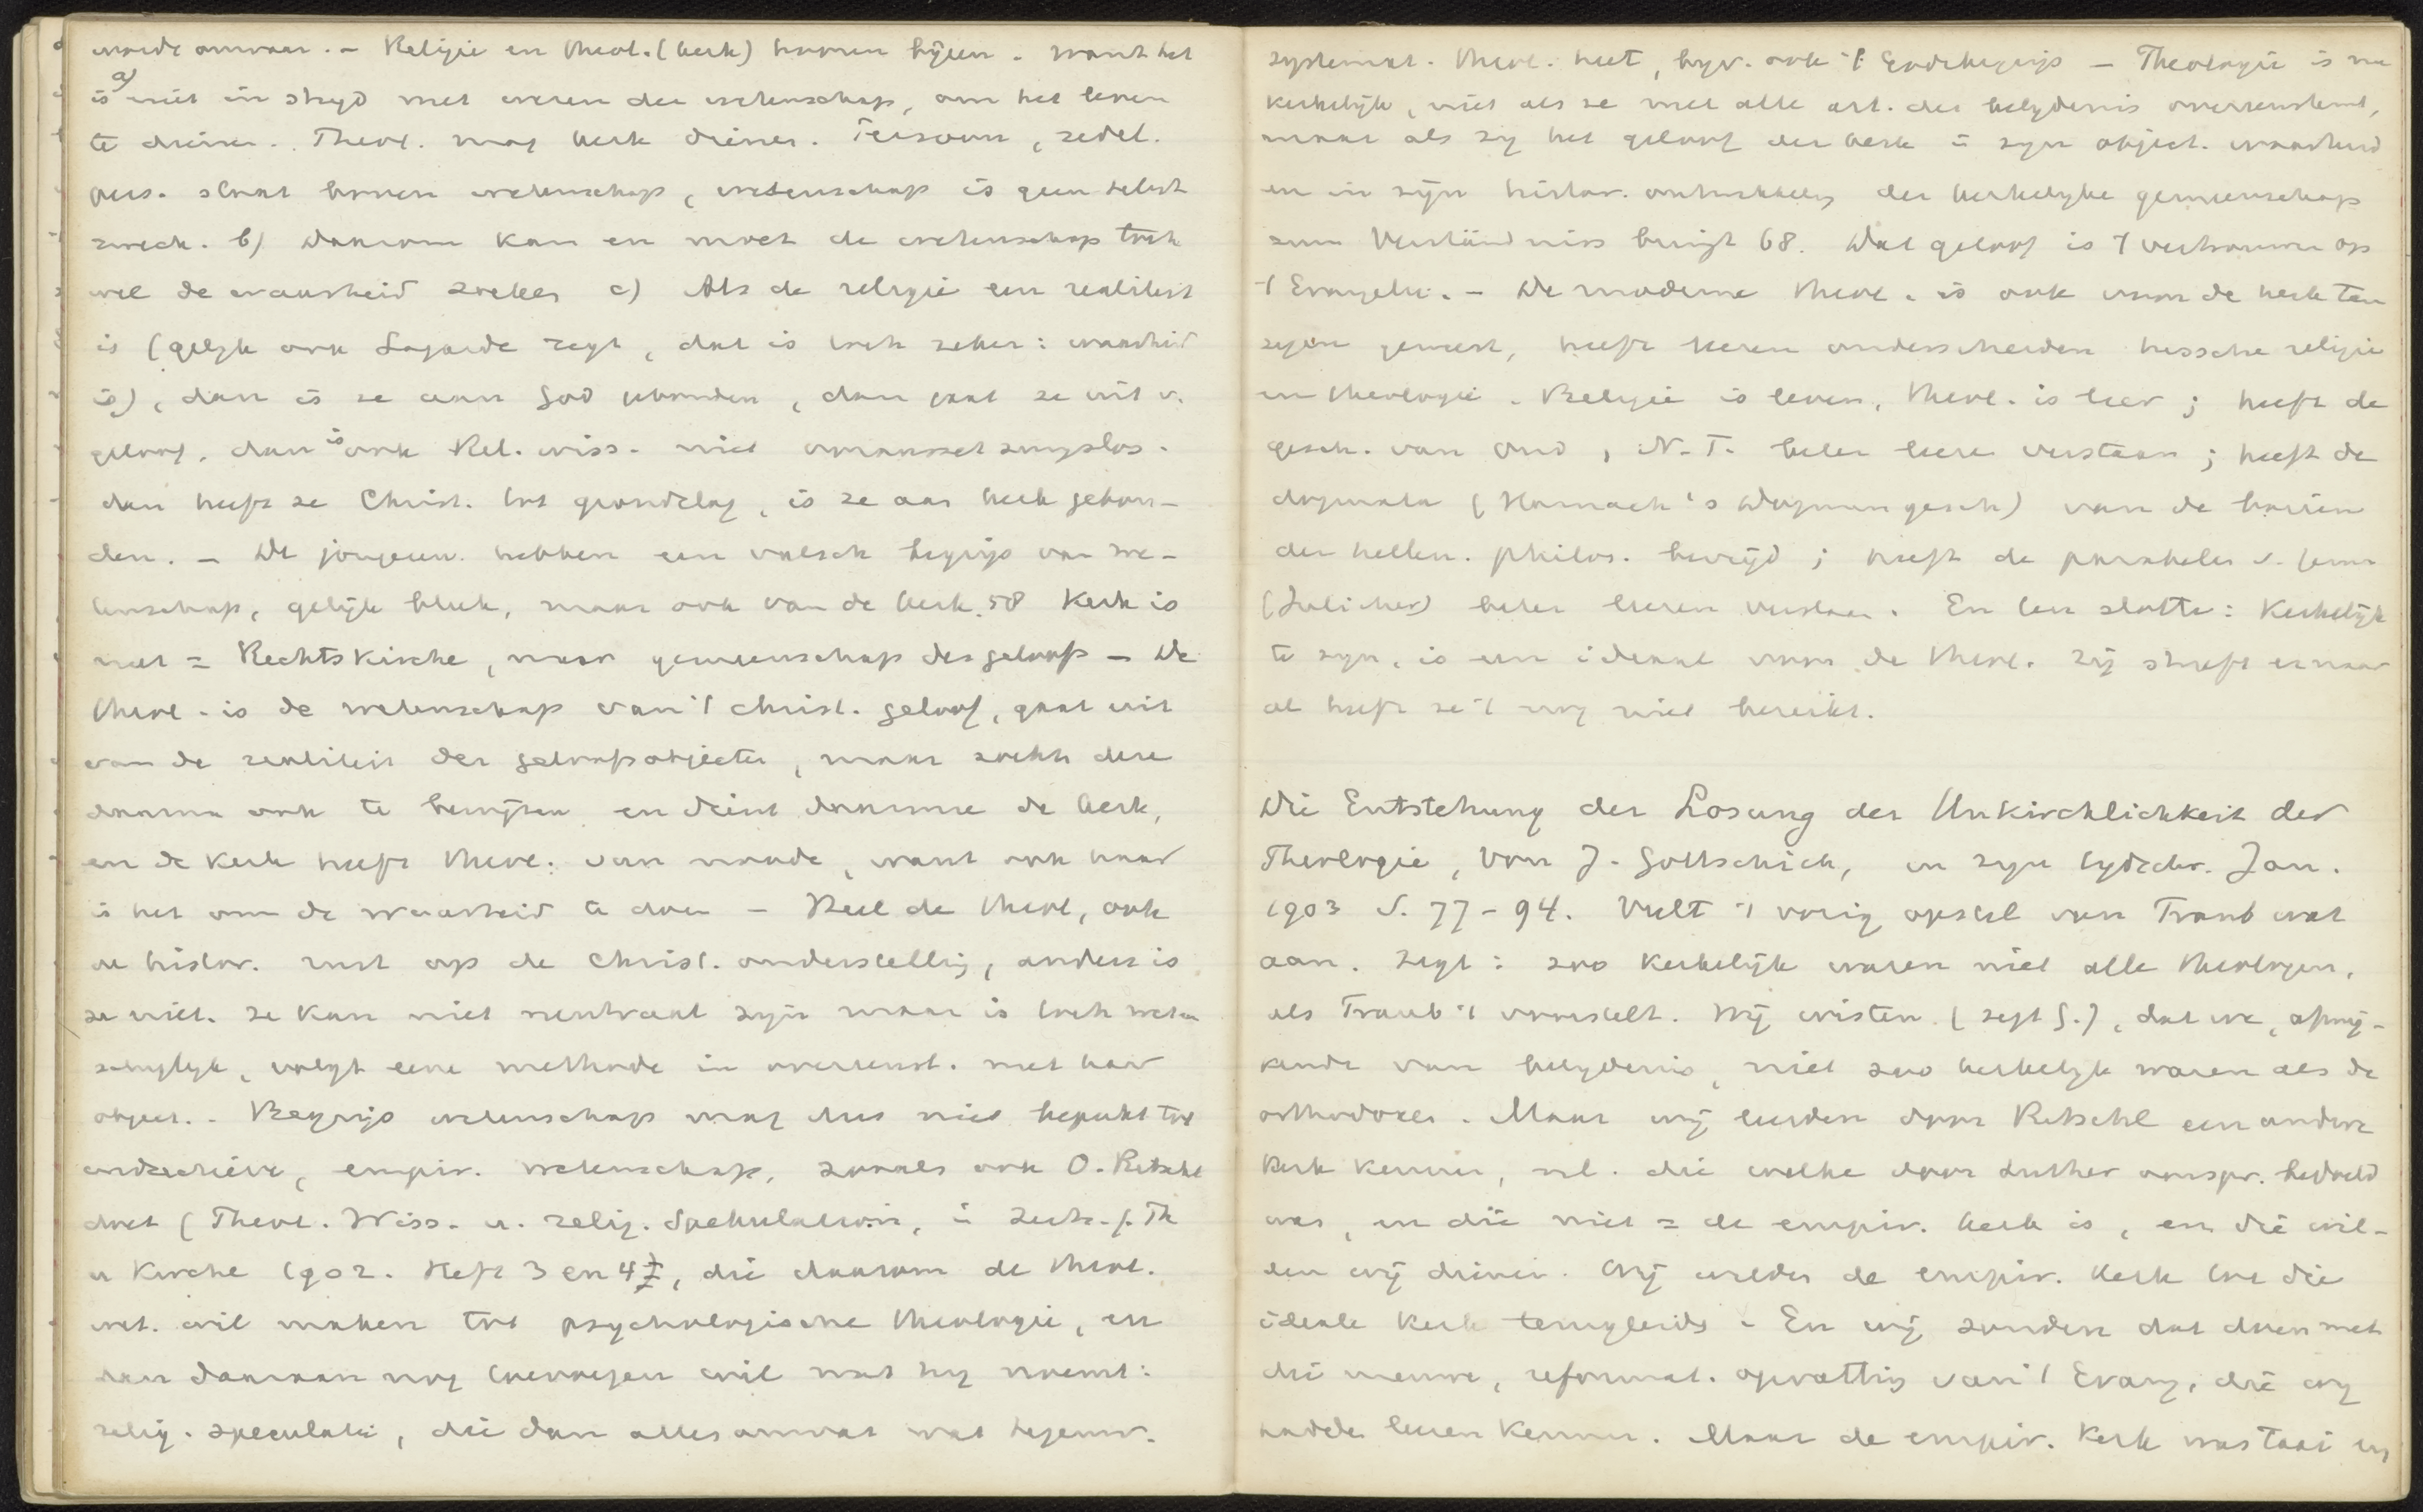 waarde onwaar. – Religie en theol. (kerk) hooren bijeen. want het
is a) niet in stryd met wezen der wetenschap, om het leven
te dienen. Theol. mag kerk dienen. Persoon, zedel.
pers. staat boven wetenschap, wetenschap is geen selbst
zweck. b) Daarom kan en moet de wetenschap toch
wel de waarheid zoeken c) Als de religie een realiteit
is (gelyk ook Lagarde zegt, dat is toch zeker: waarheid
is), dan is ze aan God gebonden, dan gaat ze uit v.
geloof, dan is ook Rel. wiss. niet voraussetzungslos.
dan heeft ze Christ. tot grondslag, is ze aan kerk gebon-
den. – De jongeren hebben een valsch begrip van we-
tenschap, gelijk bleek, maar ook van de kerk. 58 Kerk is
niet = Rechtskirche, maar gemeenschap des geloofs – De
theol. is de wetenschap van 't christ. geloof, gaat uit
van de realiteit der geloofsobjecten, maar zoekt deze
daarna ook te bewijzen en dient daarmee de kerk,
en de Kerk heeft theol. van noode, want ook haar
is het om de waarheid te doen – Heel de theol, ook
de histor. rust op de christ. onderstelling, anders is
ze niet. ze kan niet neutraal zijn maar is toch weten
schaplyk, volgt eene methode in overeenst. met haar
object. – Begrip wetenschap mag dus niet beperkt tot
ondescrieve, empir. wetenschap, zooals ook O. Ritschl
doet (Theol. Wiss. u. relig. Spekulation, in Zeits. f. Th
u Kirche 1902. Heft 3 en 4), die daarom de theol.
wet. wil maken tot psychologische theologie, en
dan daaraan nog toevoegen wil wat hy noemt:
relig. speculatie, die dan alles omvat wat tegenw.
systemat. theol. heet, byv. ook 't Godsbegrip – Theologie is nu
kerkelijk, niet als ze met alle art. der belydenis overeenstemt,
maar als zy het geloof der kerk in zyn object. waarheid
en in zijn histor. ontwikkeling der kerkelyke gemeenschap
zum Verständniss bringt 68. Dat geloof is 't vertrouwen op
't Evangelie. – De moderne theol. is ook voor de kerk ten
zegen geweest, heeft leeren onderscheiden tusschen religie
en theologie. Religie is leven, theol. is leer; heeft de
gesch. van Oud, N. T. beter leeren verstaan; heeft de
dogmata (Harnack's Dogmengesch) van de boeien
der hellen. philos. bevrijd; heeft de parabelen v. Jezus
(Jülicher) beter leeren verstaan. En ten slotte: Kerkelijk
te zyn, is een ideaal voor de theol. Zij streeft ernaar
al heeft ze 't nog niet bereikt.
Die Entstehung der Losung der Unkirchlichkeit der
Theologie, von J. Gottschick, in zyn tydschr. Jan.
1903 S. 77–94. Vult 't vorig opstel van Traub wat
aan. Zegt: zoo Kerkelijk waren niet alle theologen,
als Traub 't voorstelt. Wij wisten (zegt G.), dat we, afwij-
kende van belydenis, niet zoo kerkelyk waren als de
orthodoxen. Maar wij leerden door Ritschl een andere
kerk kennen, nl. die welke door Luther oorspr. bedoeld
was, en die niet = de empir. kerk is, en die wil-
den wij dienen. Wij wilden de empir. kerk tot die
ideale Kerk terugleiden. En wij zouden dat doen met
die nieuwe, reformat. opvatting van 't Evang, die wy
hadden leeren kennen. Maar de empir. Kerk was taai en